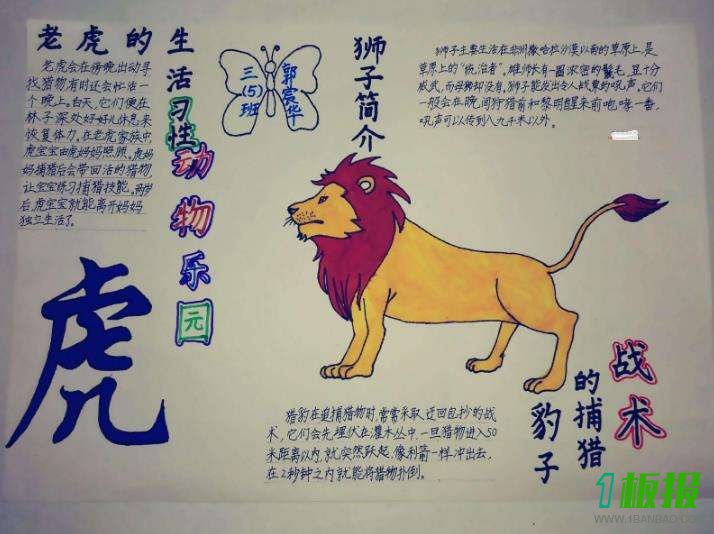 老虎的生活习性
老虎会在傍晚出动寻
找猎物有时还会忙活一
个晚上。白天,它们便在
林子深处好好儿休息来
恢复体力。在老虎家族中,
虎宝宝由虎妈妈照顾。虎妈
妈捕猎后会带回活的猎物,
让宝宝练习捕猎技能。两岁
后虎宝宝就能离开妈妈
独立生活了。
动物乐园
虎
三(5)班
郭宸华
狮子简介
狮子主要生活在非洲撒哈拉沙漠以南的草原上,是
草原上的“统治者”。雄狮长有一圈浓密的鬃毛,显十分
威武,而母狮却没有,狮子能发出令人战栗的吼声。它们
一般会在晚间狩猎前和黎明醒来前咆哮一番,
吼声可以传到八九千米以外。
豹子的捕猎战术
猎豹在追捕猎物时,常常采取迂回包抄的战
术,它们会先埋伏在灌木丛中,一旦猎物进入50
米距离以内,就突然跃起,像利箭一样冲出去,
在2秒钟之内就能将猎物扑倒。
1板报
WWW.1BANBAO.COM